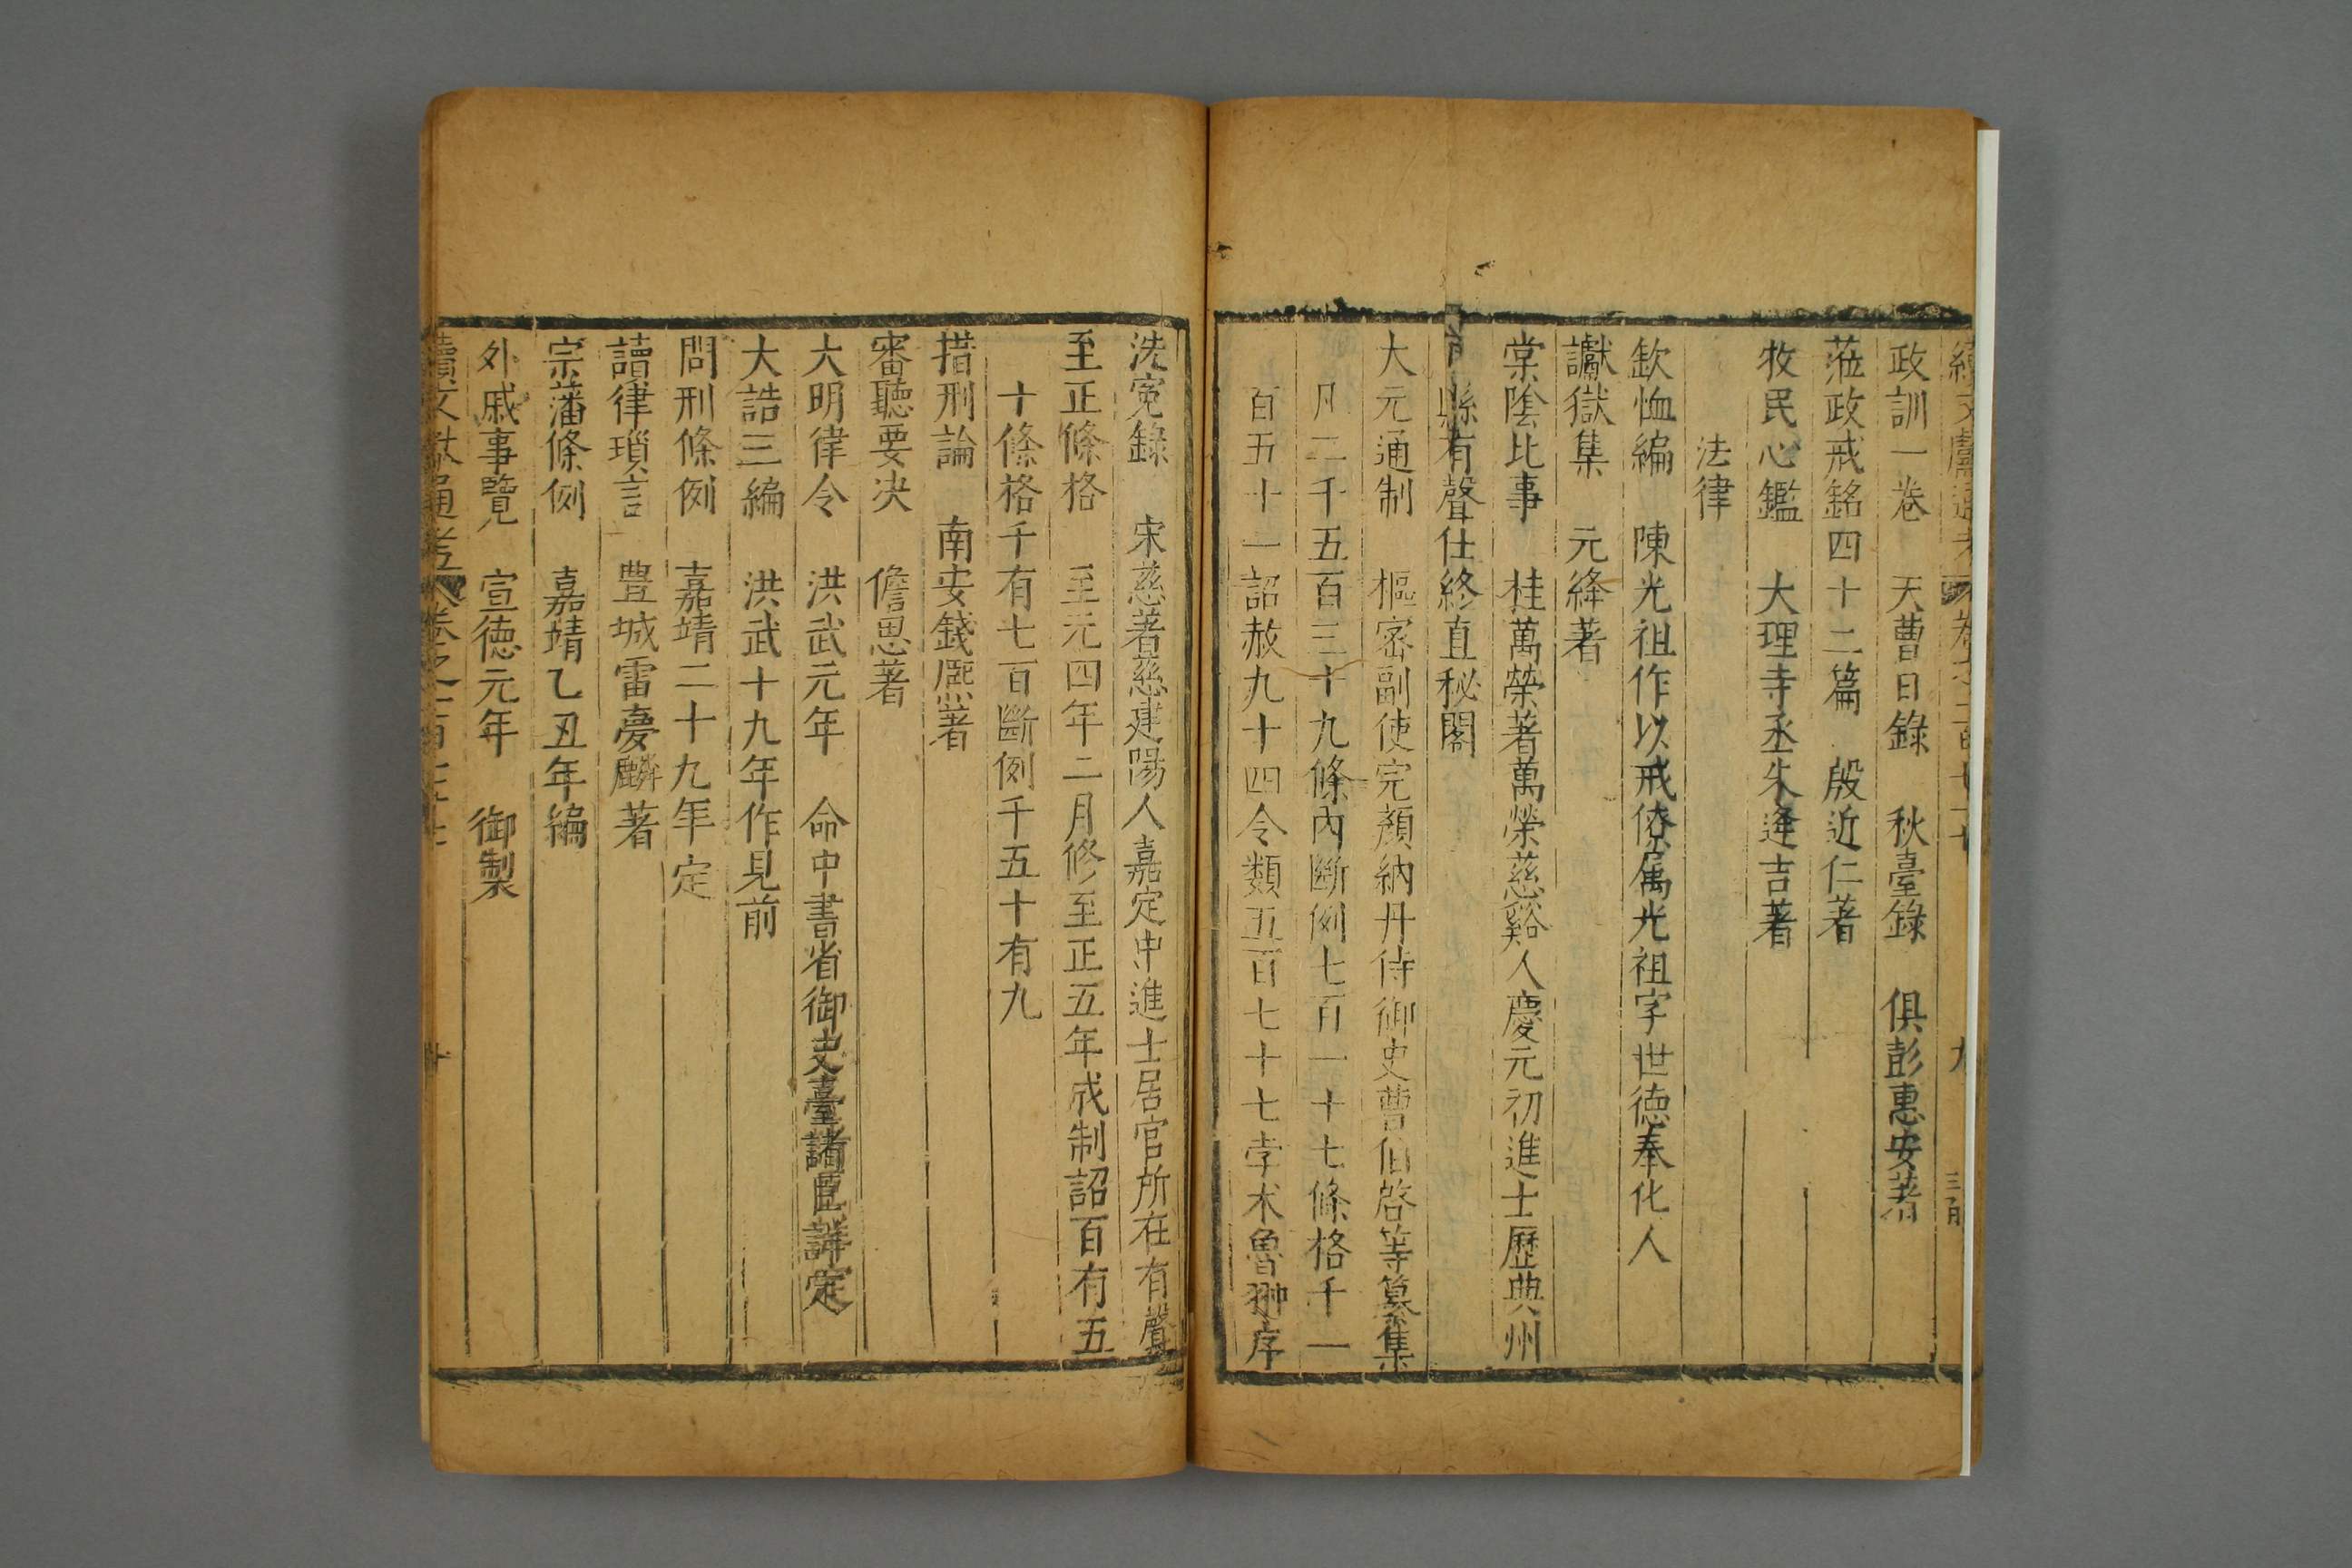 續文獻通考 卷之一百七十七 九
政訓一卷 天曹日錄 秋臺錄 俱彭惠安著
蒞政戒銘四十二篇 殷近仁著
牧民心鑑 大理寺丞朱逢吉著
法律
欽恤編 陳光祖作以戒僚属光祖字世德奉化人
讞獄集 元絳著
棠陰比事 桂萬榮著萬榮慈谿人慶元初進士歷典州
縣有聲仕終直秘閣
大元通制 樞密副使完顏納丹侍御史曹伯啓等纂集
凡二千五百三十九條內斷例七百一十七條格千一
百五十一詔赦九十四令類五百七十七孛术魯翀序
洗寃錄 宋慈著慈建陽人嘉定中進士居官所在有聲
至正條格 至元四年二月修至正五年成制詔百有五
十條格千有七百斷例千五十有九
措刑論 南安錢熈著
審聽要决 儋思著
大明律令 洪武元年 命中書省御史臺諸臣詳定
大誥三編 洪武十九年作見前
問刑條例 嘉靖二十九年定
讀律瑣言 豊城雷夢麟著
宗藩條例 嘉靖乙丑年編
外戚事覽 宣德元年 御製
續文獻通考 卷之一百七十七 十